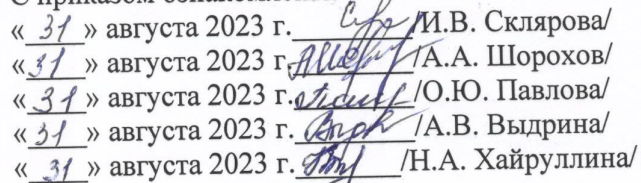 С приказом ознакомлены
« 31 » августа 2023 г. /И.В. Склярова/
« 31 » августа 2023 г. /А.А. Шорохов/
« 31 » августа 2023 г. /О.Ю. Павлова/
« 31 » августа 2023 г. /А.В. Выдрина/
« 31 » августа 2023 г. /Н.А. Хайруллина/